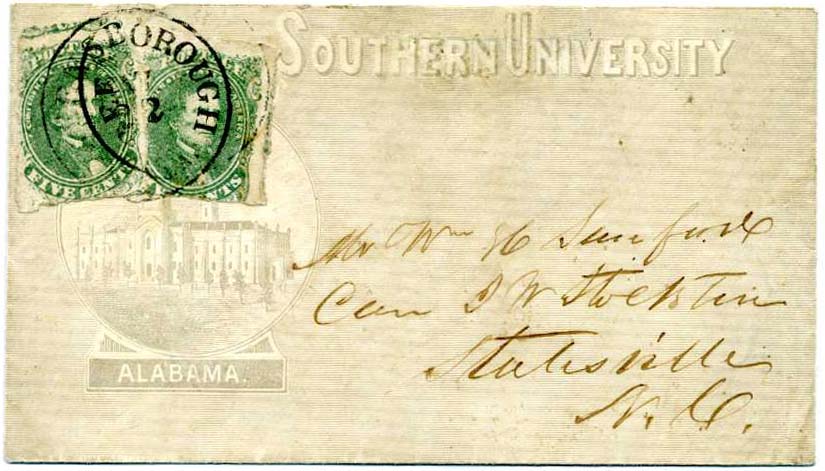 SOUTHERN UNIVERSITY
BOROUGH
2
FIVE CENTS
CENTS
ALABAMA.
Mr Wm H Sanford
Care J W Stockton
Statesville
N. C.